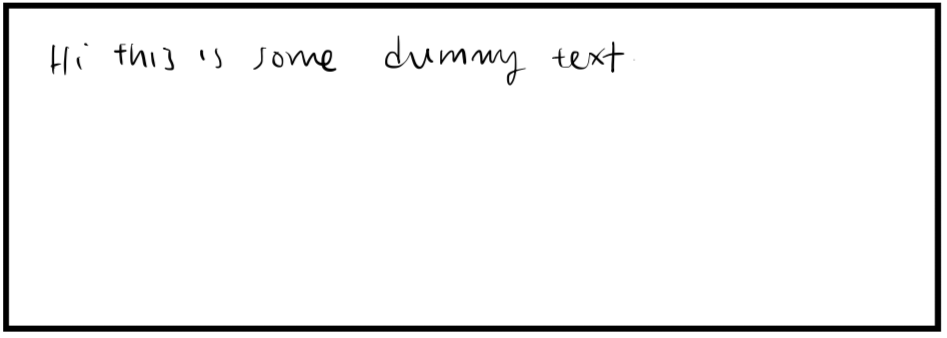 Hi this is some dummy text